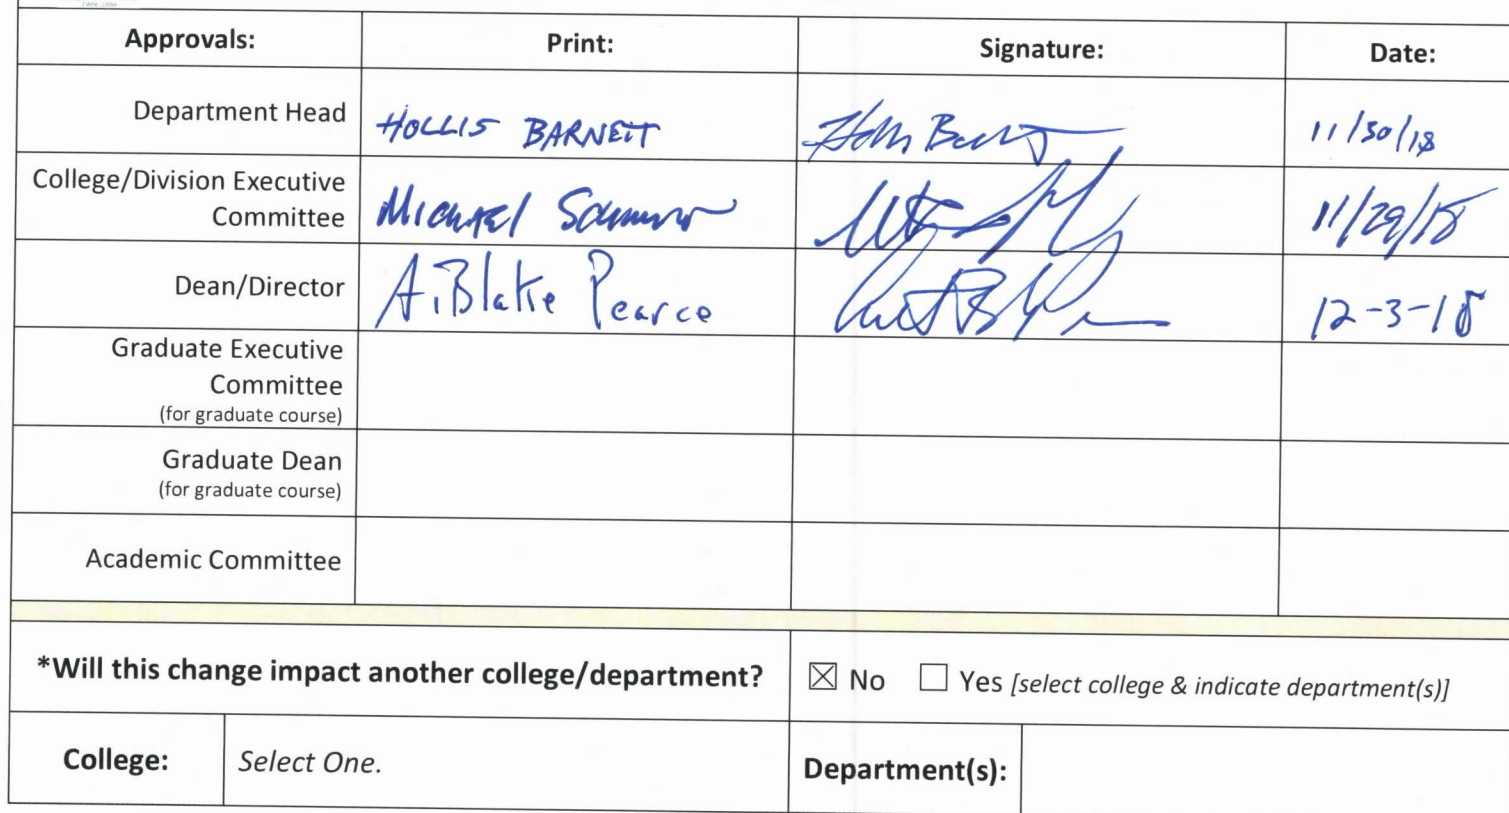 Approvals: Print: Signature: Date:
Department Head HOLLIS BARNETT 11/30/18
College/Division Executive
Committee MICHAEL 11/29/18
Dean/Director A. Blake Pearce 12-3-18
Graduate Executive
Committee
(for graduate course)
Graduate Dean
(for graduate course)
Academic Committee
*Will this change impact another college/department? ☒ No ☐ Yes [select college & indicate department(s)]
College: Select One. Department(s):